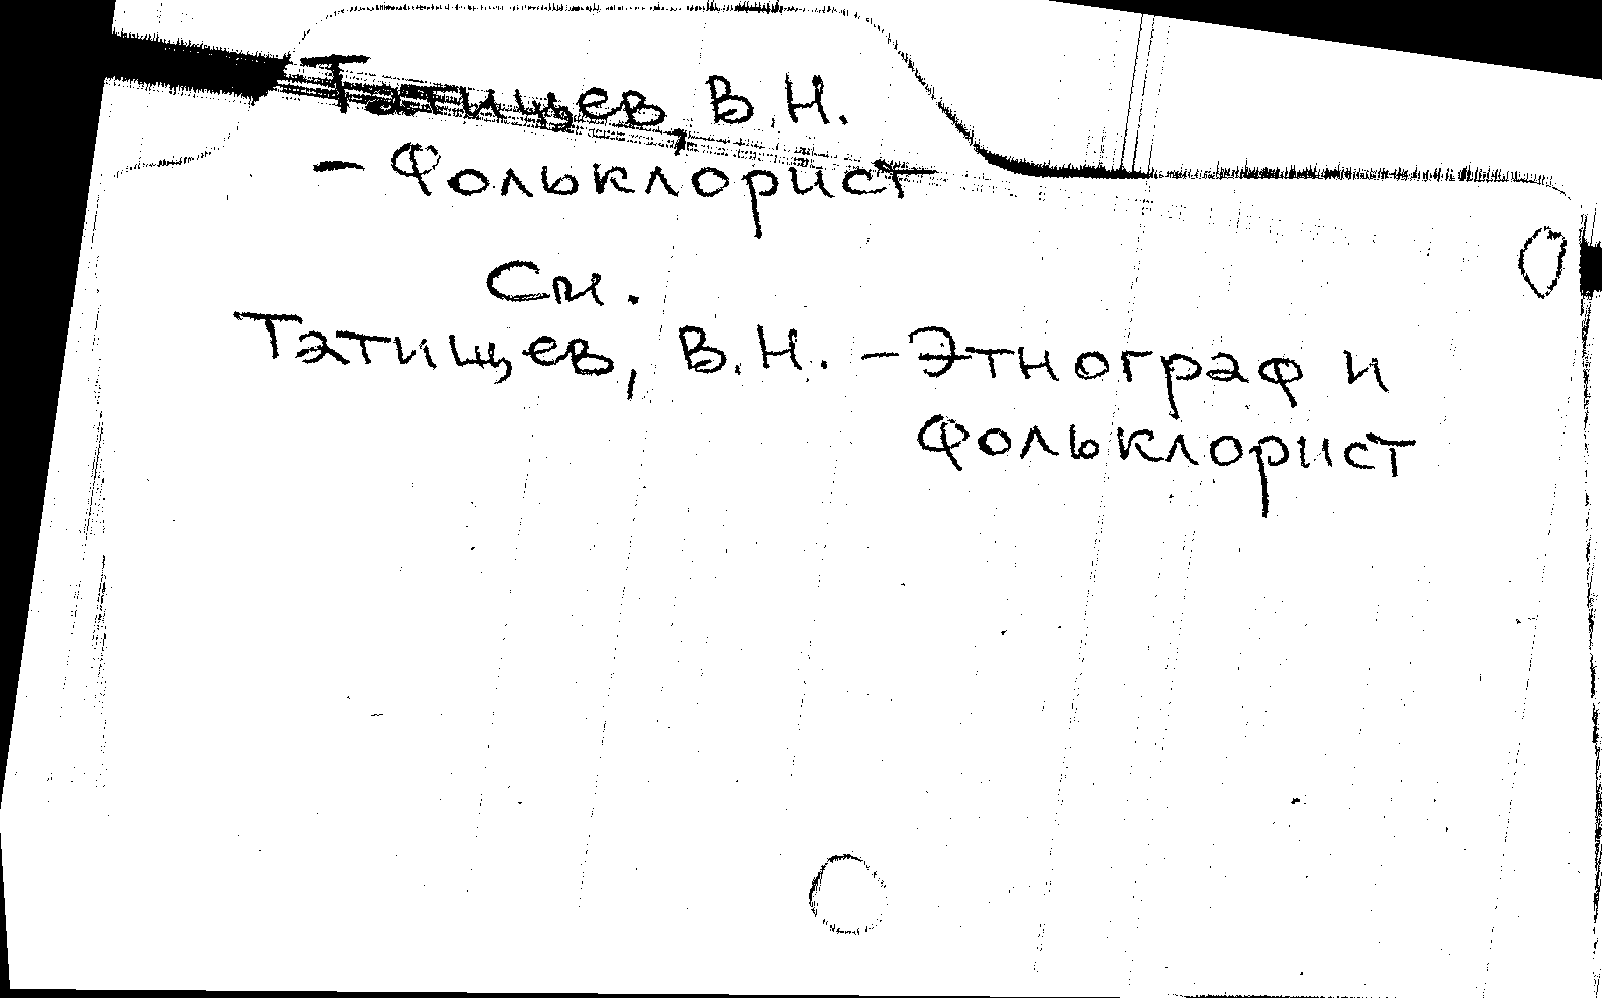 Татищев, В.Н.
– Фольклорист
См.
Татищев, В.Н. – Этнограф и
фольклорист